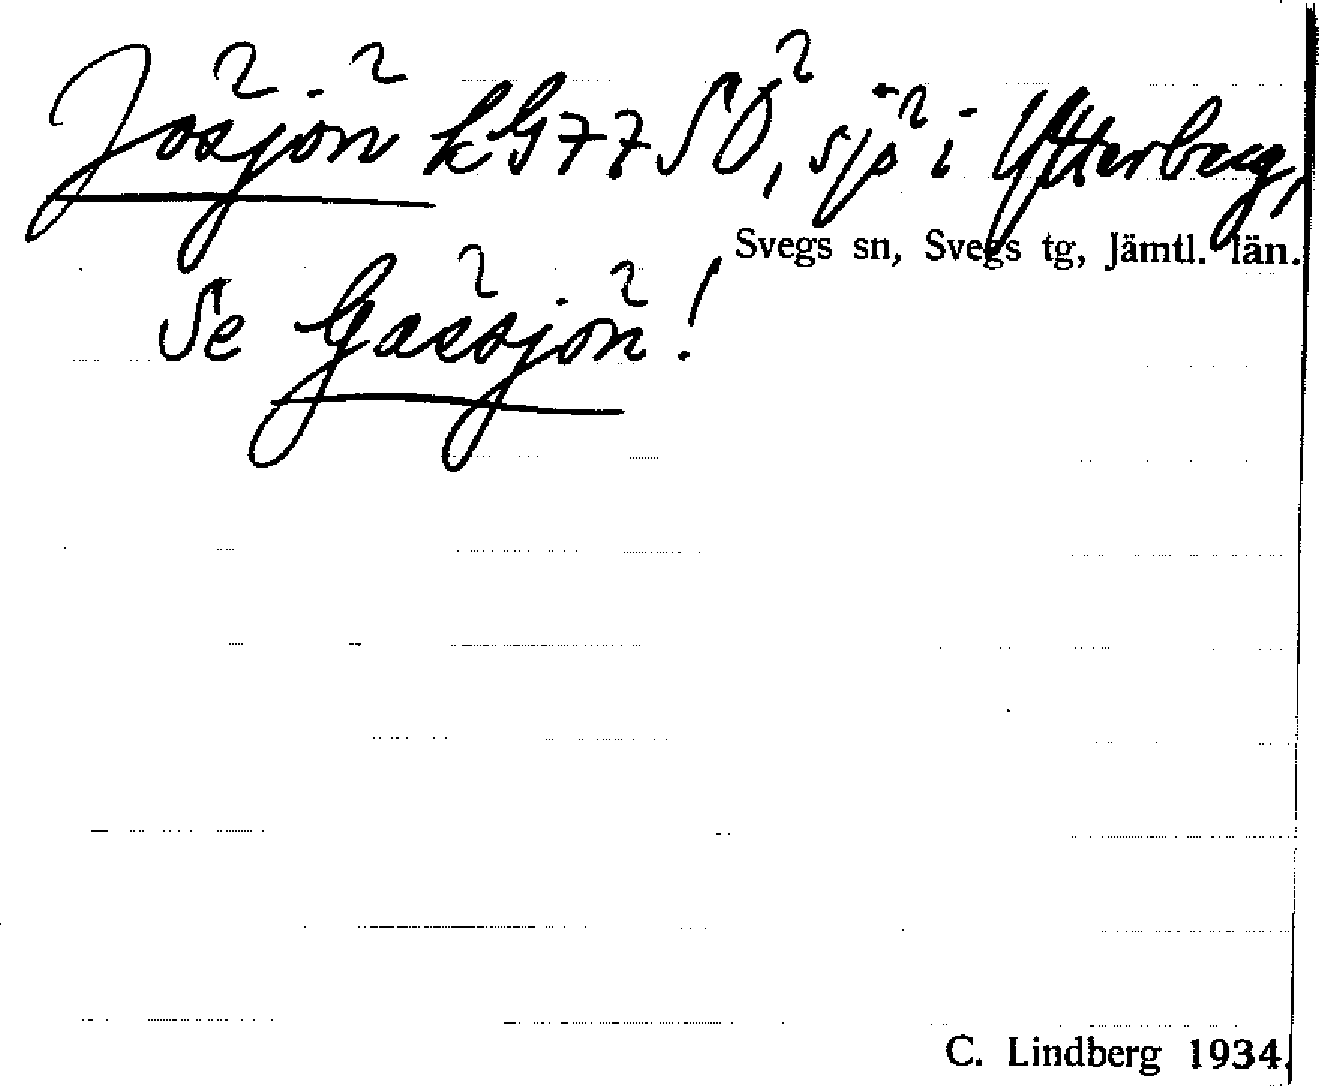 Jösjön kG77SÖ, sjö i Ytterberg,
Svegs sn, Svegs tg, Jämtl. län.
Se Gässjön!
C. Lindberg 1934.